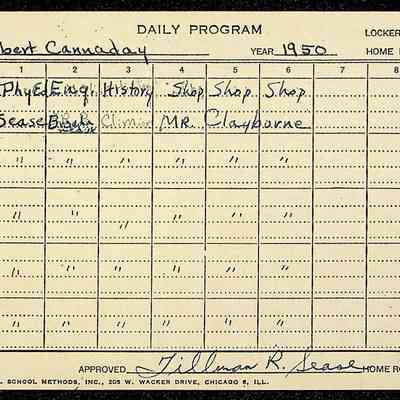 DAILY PROGRAM
LOCKER
bert Cannaday YEAR 1950 HOME
1 2 3 4 5 6 7 8
PhyEd Eng. History Shop Shop Shop
Sease MR. Clayborne
" " " " " "
" " " " " "
" " " " " "
" " " " " "
APPROVED Tillman R. Sease HOME RO
SCHOOL METHODS, INC., 205 W. WACKER DRIVE, CHICAGO 6, ILL.